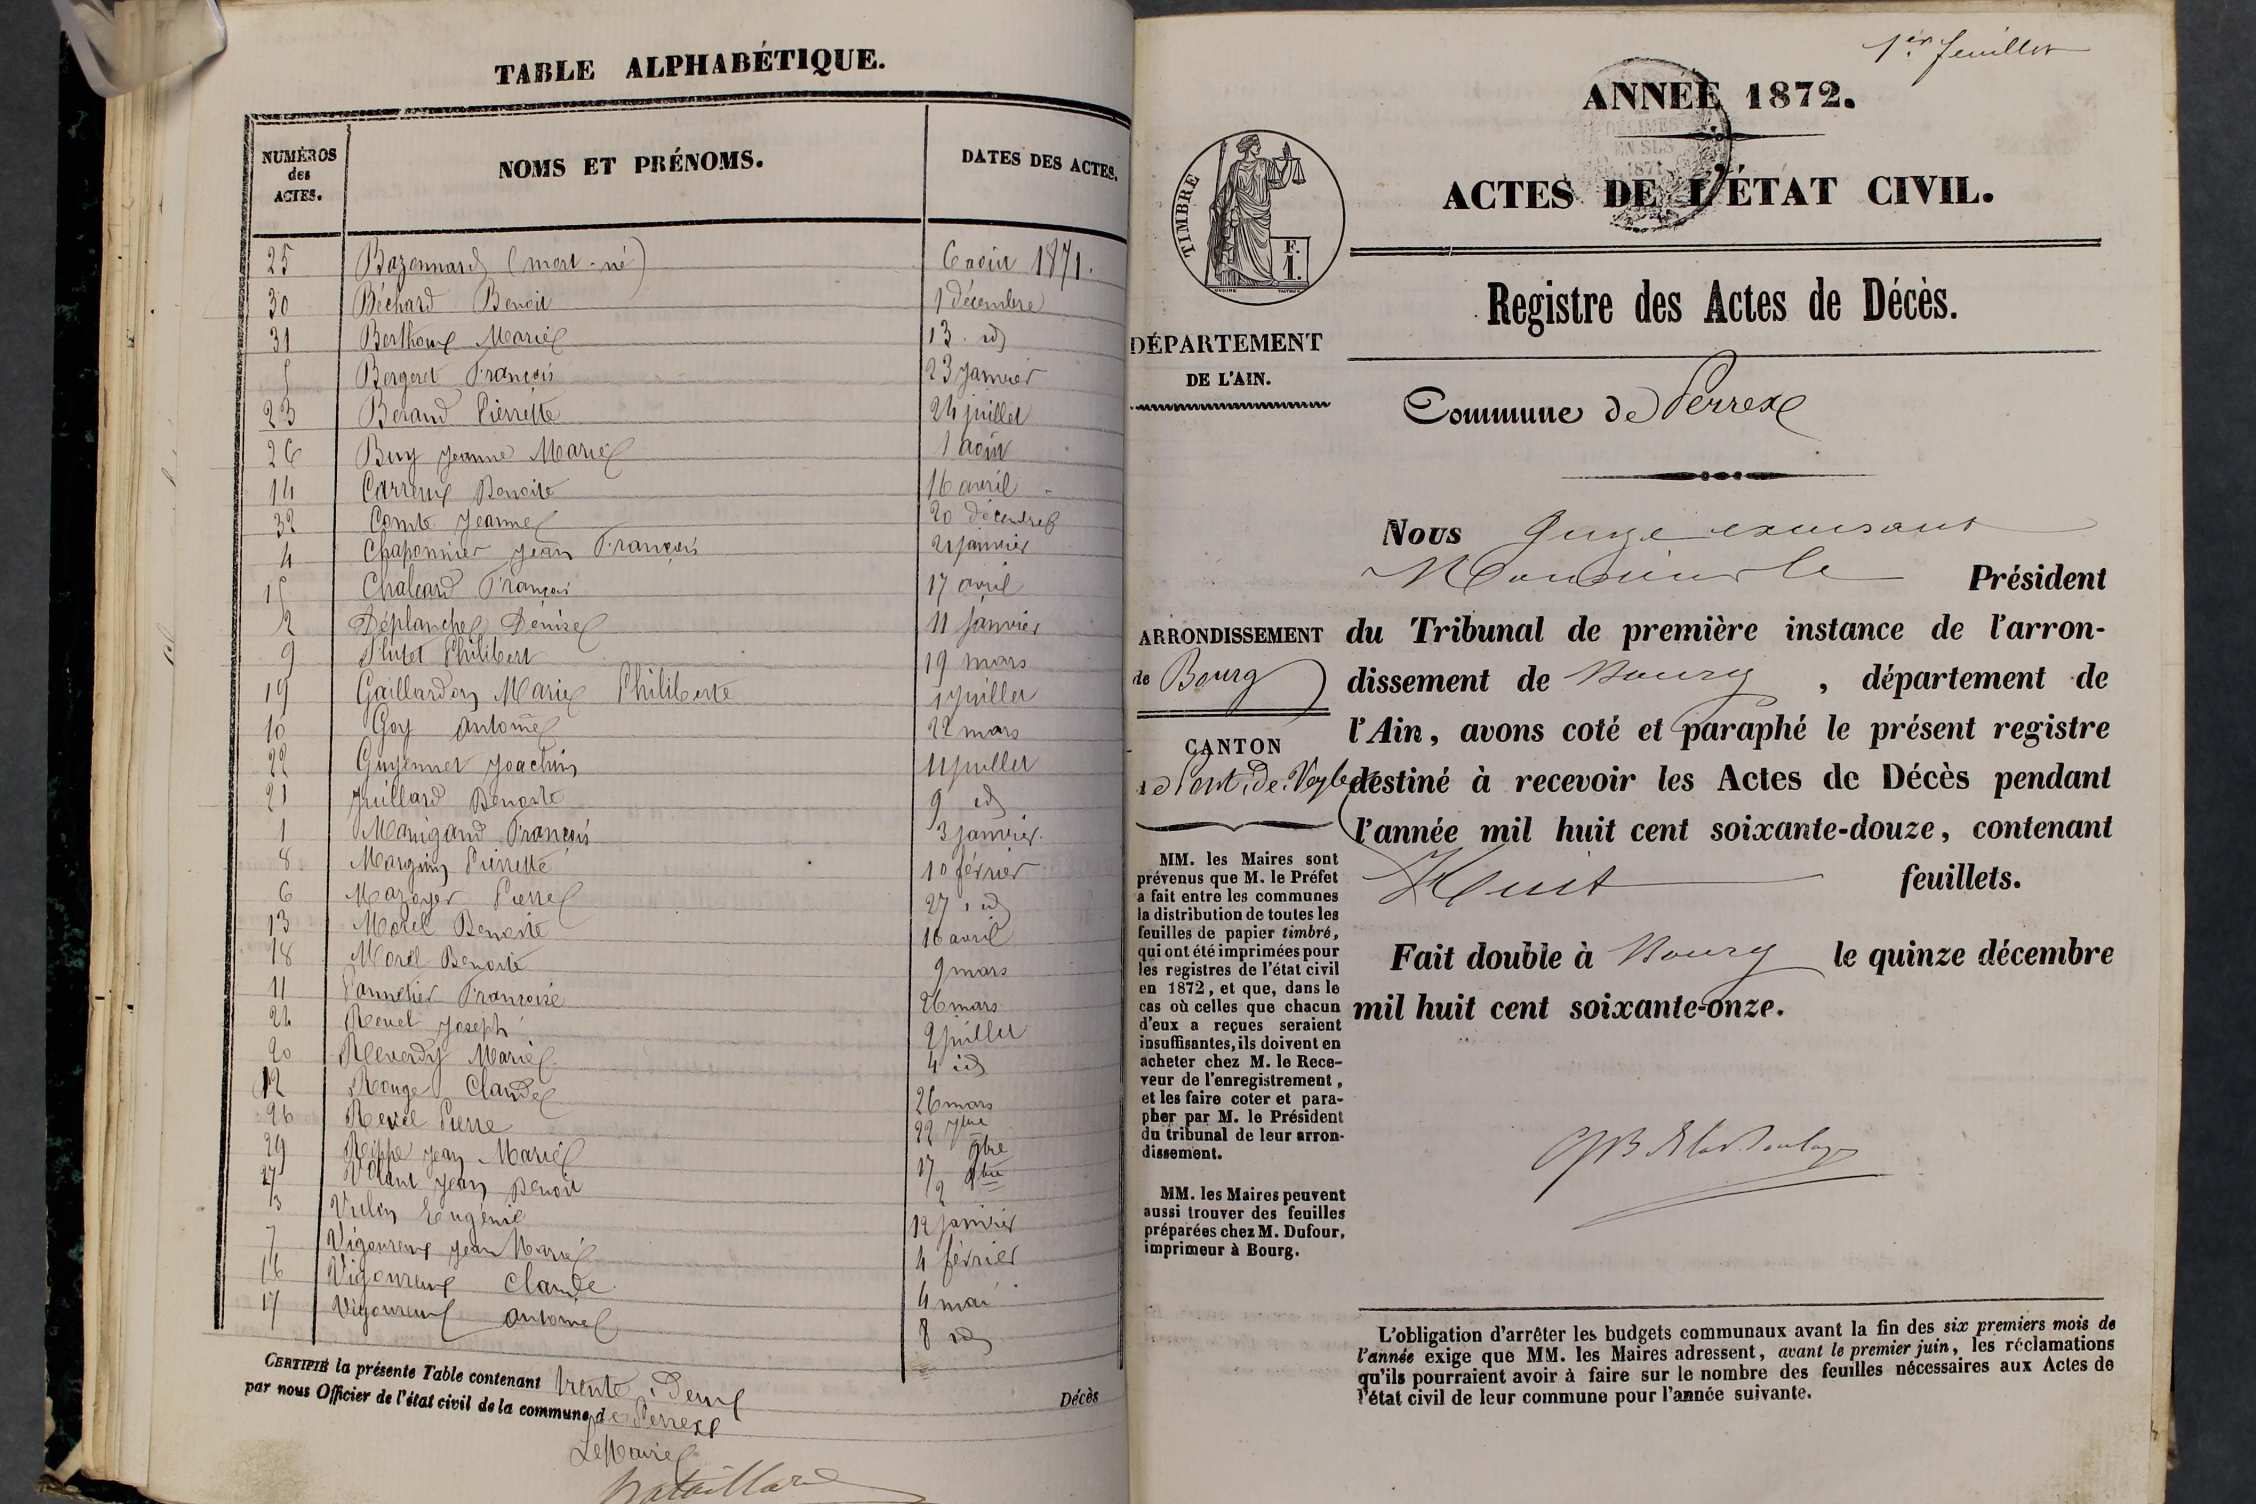 TABLE ALPHABÉTIQUE.
NUMÉROS des ACTES.
NOMS ET PRÉNOMS.
DATES DES ACTES.
25 Bazonnard (mort-né) 6 août 1871.
30 Béchard Benoit 1 décembre
31 Berthoux Marie 13 id
5 Bergeret François 23 janvier
23 Beraud Pierrette 24 juillet
26 Buy Jeanne Marie 1 août
14 Carreux Benoite 16 avril
32 Comte Jeanne 20 décembre
4 Chaponnier Jean François 21 janvier
15 Chaleard François 17 avril
2 Déplanche Denise 11 janvier
9 Philibert 19 mars
19 Gaillardon Marie Philiberte juillet
10 Goy Antoine 22 mars
22 Guyennet Joachim 11 juillet
21 Juillard Benoite 9 id
1 Manigand François 3 janvier.
8 Mangin Pierrette 10 février
6 Mazoyer Pierre 27 id
13 Morel Benoite 16 avril
18 Morel Benoite 9 mars
11 Pannetier Françoise 26 mars
24 Revel Joseph 2 juillet
20 Reverdy Marie 4 id
12 Rongeo Claude 26 mars
26 Revel Pierre 22 7bre
29 Rippe Jean Marie 17 9bre
27 Volant Jean Benoit 2 9bre
3 Vulin Eugénie 12 janvier
7 Vigoureux Jean Marie 4 février
16 Vigoureux Claude 4 mai
17 Vigoureux Antoine 8 id
CERTIFIÉ la présente Table contenant trente-deux Décès
par nous Officier de l'état civil de la commune de Perrex
Le Maire
Bataillard
1er feuillet
ANNÉE 1872.
DÉCIMES
EN SUS
1871
ACTES DE L'ÉTAT CIVIL.
TIMBRE
F.
1.
Registre des Actes de Décès.
DÉPARTEMENT
DE L'AIN.
Commune de Perrex
Nous Juge excusant
Monsieur le Président
du Tribunal de première instance de l'arron-
dissement de Bourg, département de
l'Ain, avons coté et paraphé le présent registre
destiné à recevoir les Actes de Décès pendant
l'année mil huit cent soixante-douze, contenant
Huit feuillets.
Fait double à Bourg le quinze décembre
mil huit cent soixante-onze.
ARRONDISSEMENT
de Bourg
CANTON
de Pont-de-Veyle
MM. les Maires sont
prévenus que M. le Préfet
a fait entre les communes
la distribution de toutes les
feuilles de papier timbré,
qui ont été imprimées pour
les registres de l'état civil
en 1872, et que, dans le
cas où celles que chacun
d'eux a reçues seraient
insuffisantes, ils doivent en
acheter chez M. le Rece-
veur de l'enregistrement,
et les faire coter et para-
pher par M. le Président
du tribunal de leur arron-
dissement.
MM. les Maires peuvent
aussi trouver des feuilles
préparées chez M. Dufour,
imprimeur à Bourg.
L'obligation d'arrêter les budgets communaux avant la fin des six premiers mois de
l'année exige que MM. les Maires adressent, avant le premier juin, les réclamations
qu'ils pourraient avoir à faire sur le nombre des feuilles nécessaires aux Actes de
l'état civil de leur commune pour l'année suivante.